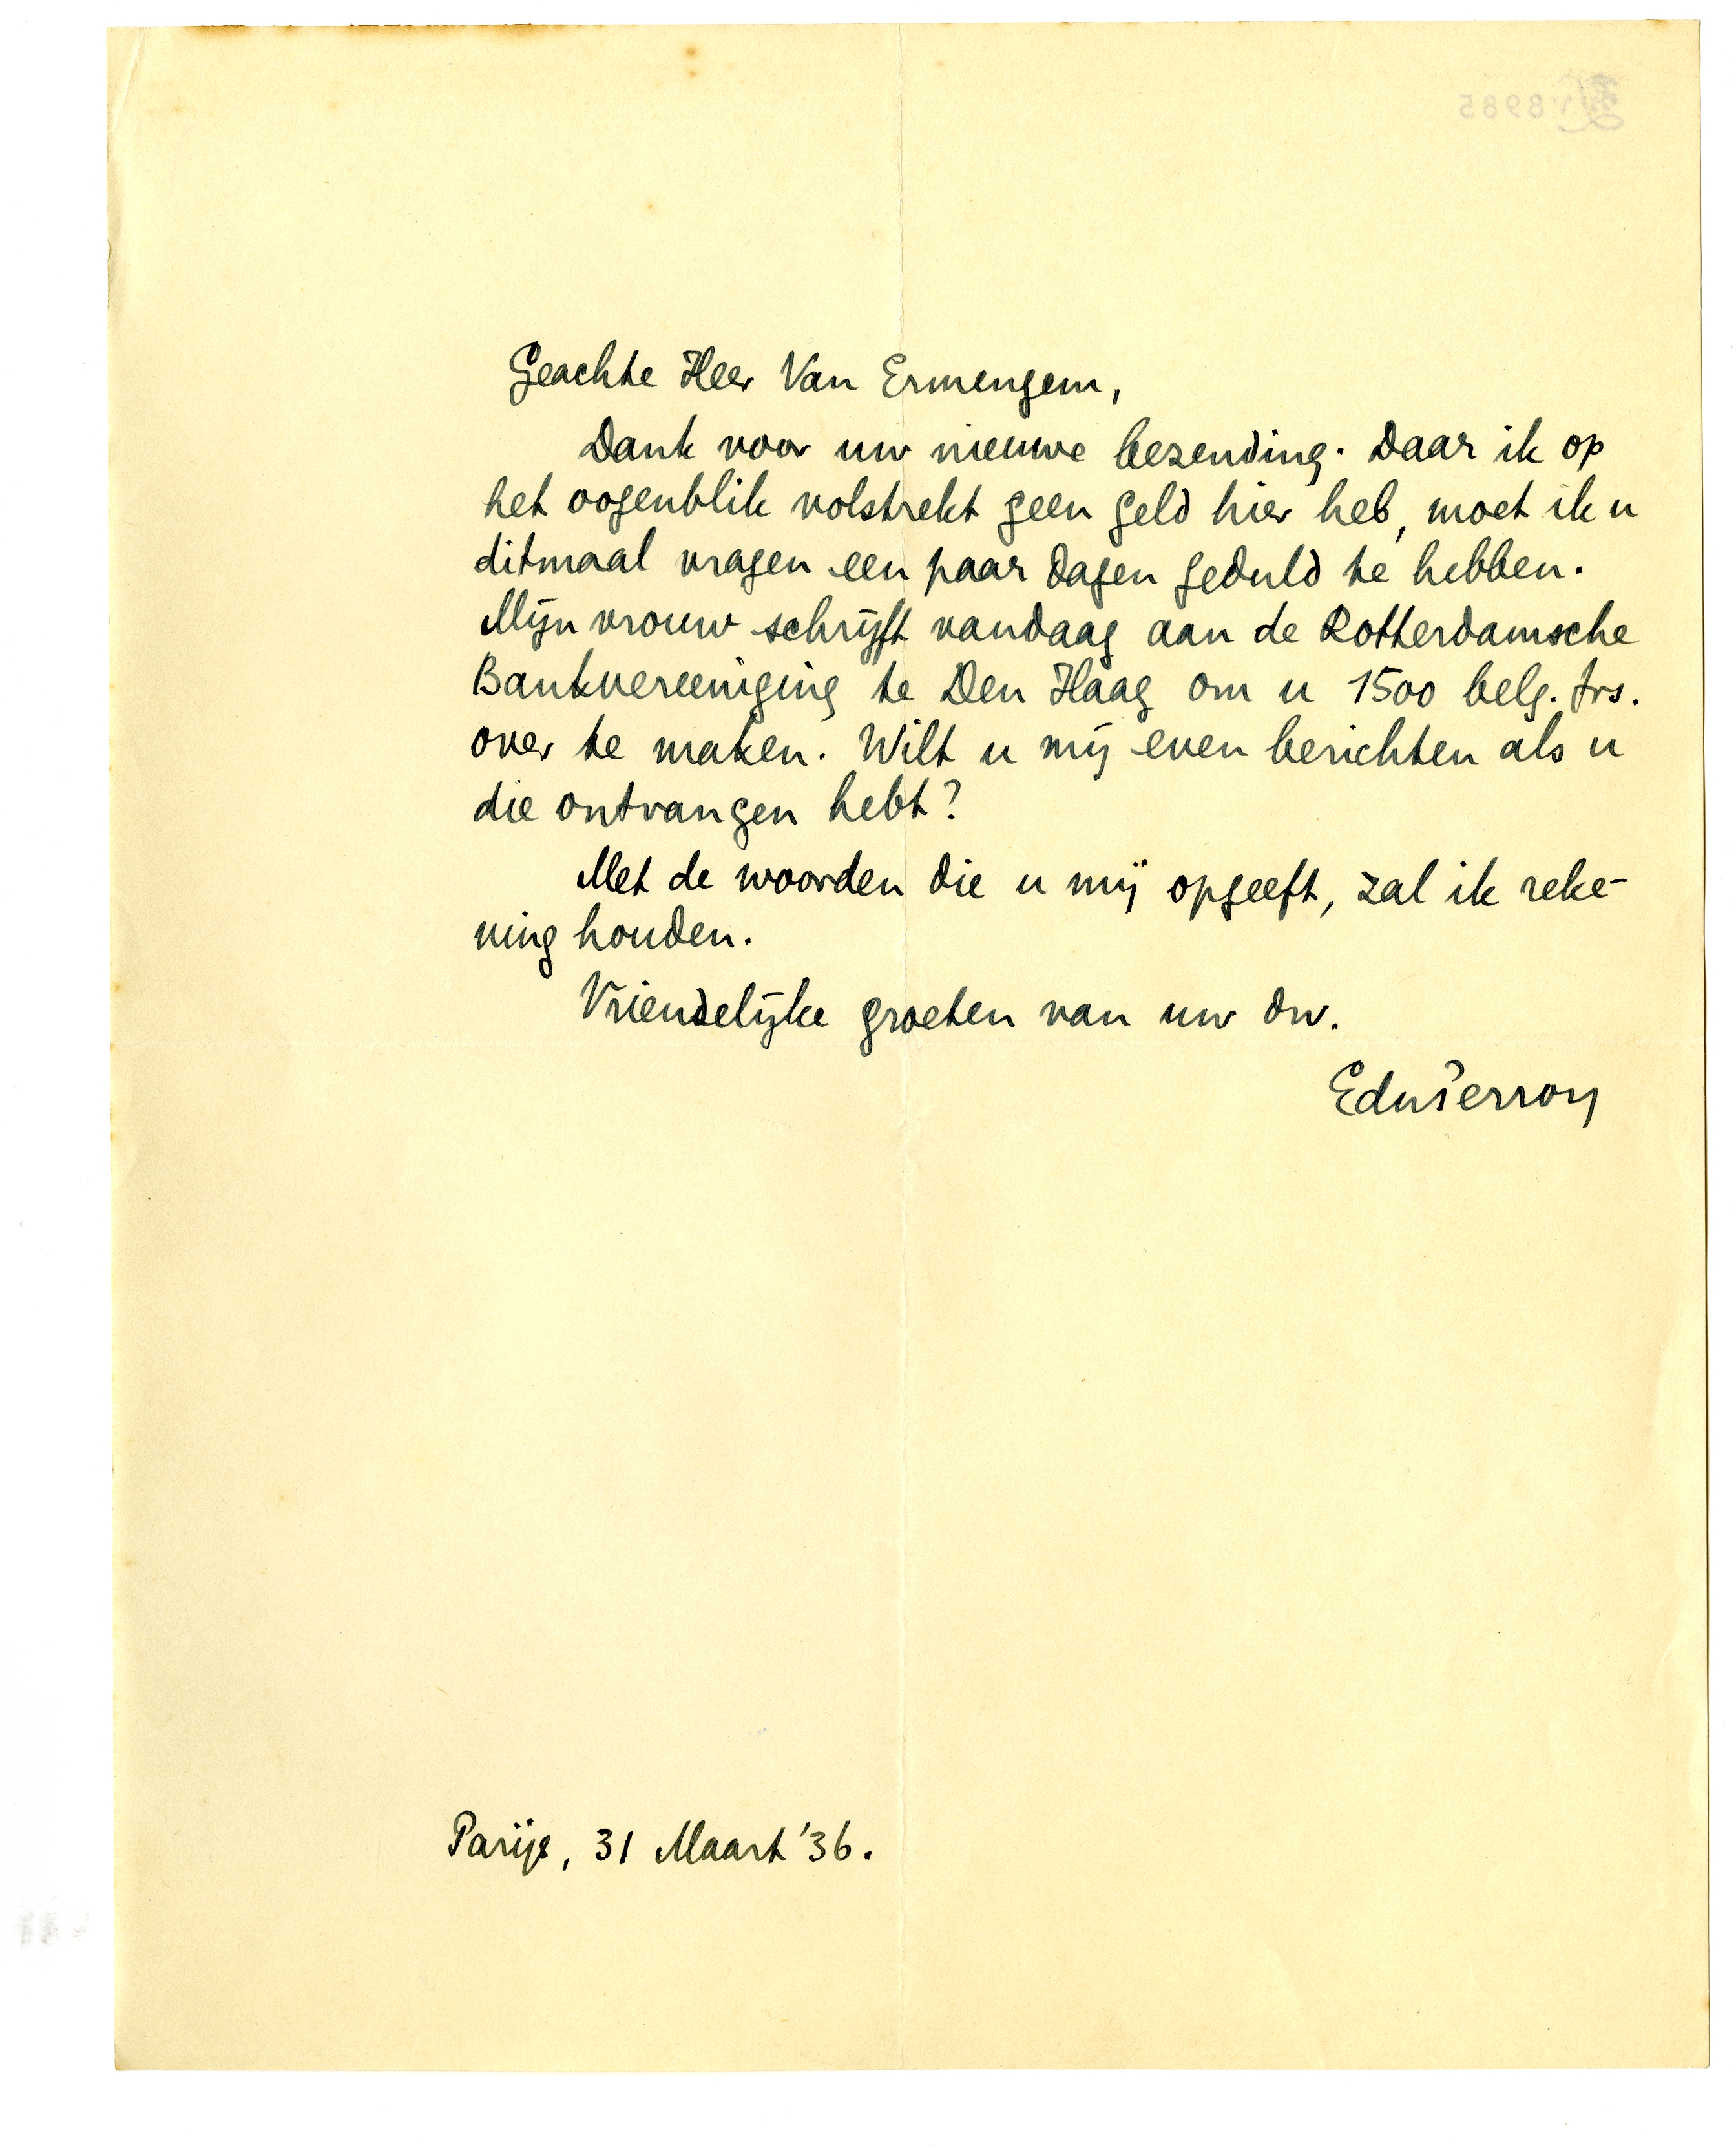 Geachte Heer Van Ermengem,
Dank voor uw nieuwe bezending. Daar ik op
het oogenblik volstrekt geen geld hier heb, moet ik u
ditmaal vragen een paar dagen geduld te hebben.
Mijn vrouw schrijft vandaag aan de Rotterdamsche
Bankvereeniging te Den Haag om u 1500 belg. frs.
over te maken. Wilt u mij even berichten als u
die ontvangen hebt?
Met de woorden die u mij opgeeft, zal ik reke-
ning houden.
Vriendelijke groeten van uw dw.
EduPerron
Parijs, 31 Maart '36.